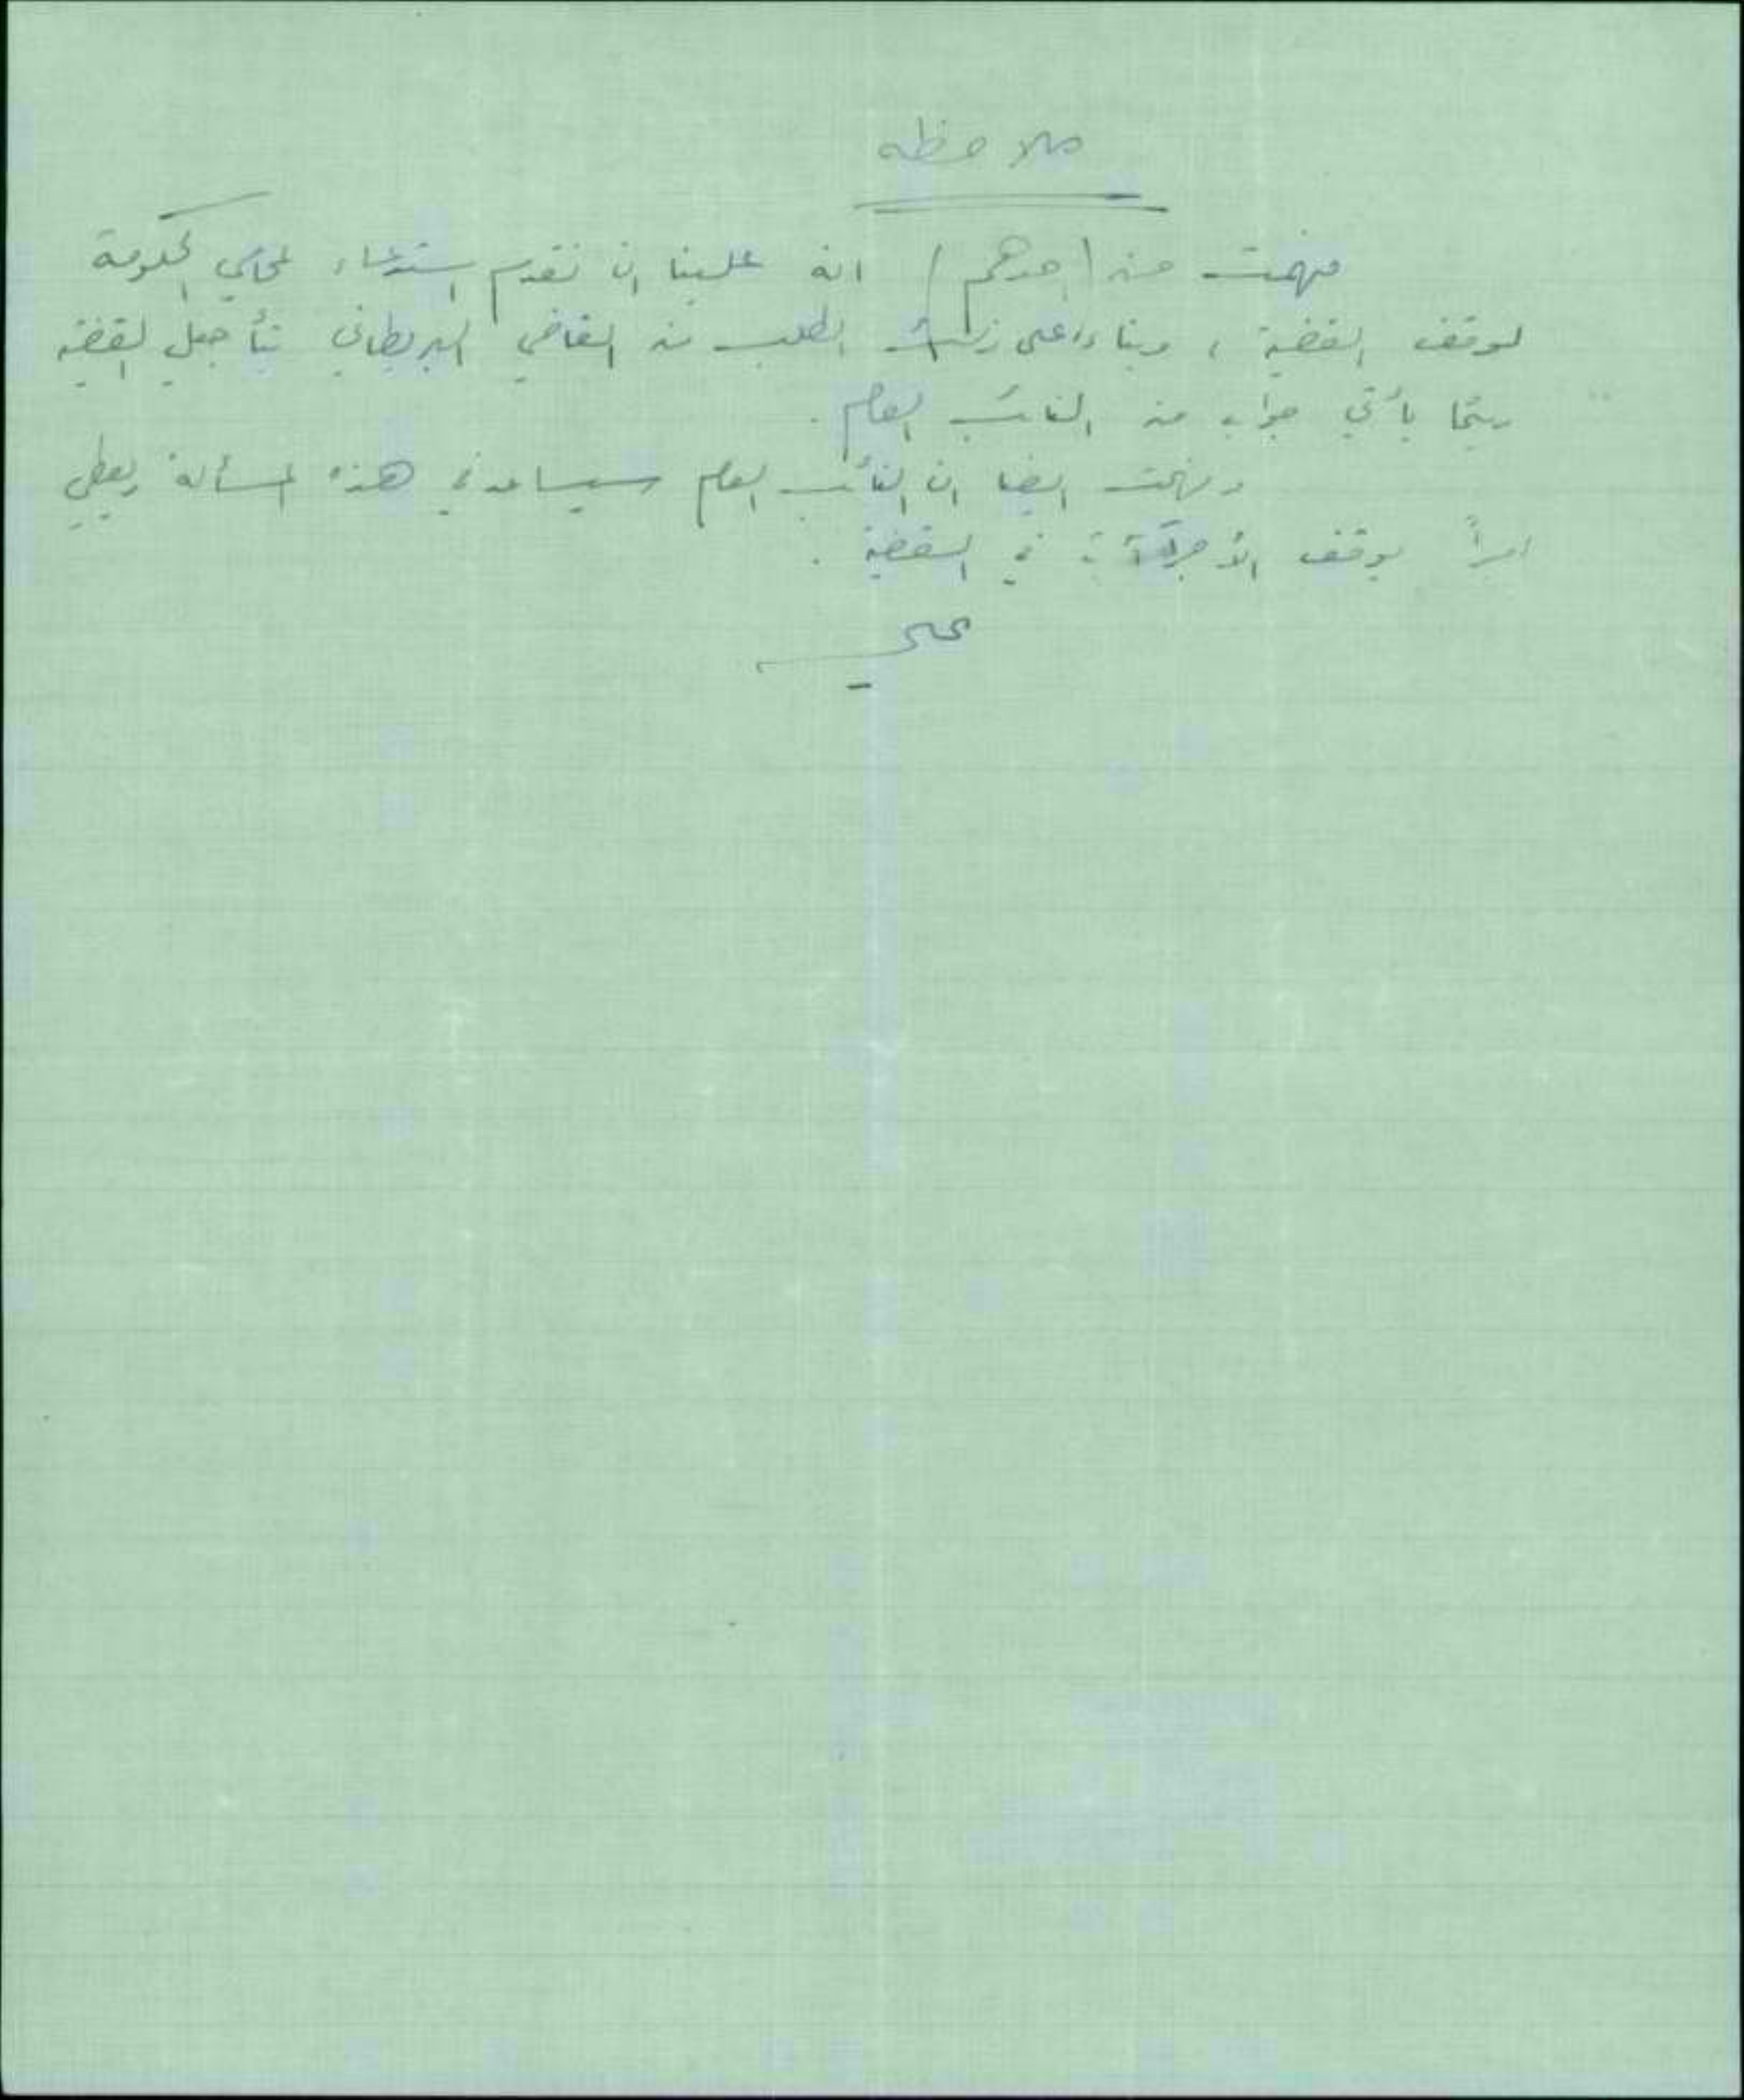 ملاحظه
فهمت من (احدهم) انه علينا ان نقدم استدعاء لمحامي الحكومة
لوقف القضية ، وبناء على ذلك الطلب من القاضي البريطاني تأجيل القضية
ريثما يأتي جواب من النائب العام .
وفهمت ايضا ان النائب العام سيساعد في هذه المسألة ويعطي
امراً بوقف الأجراآت في القضية .